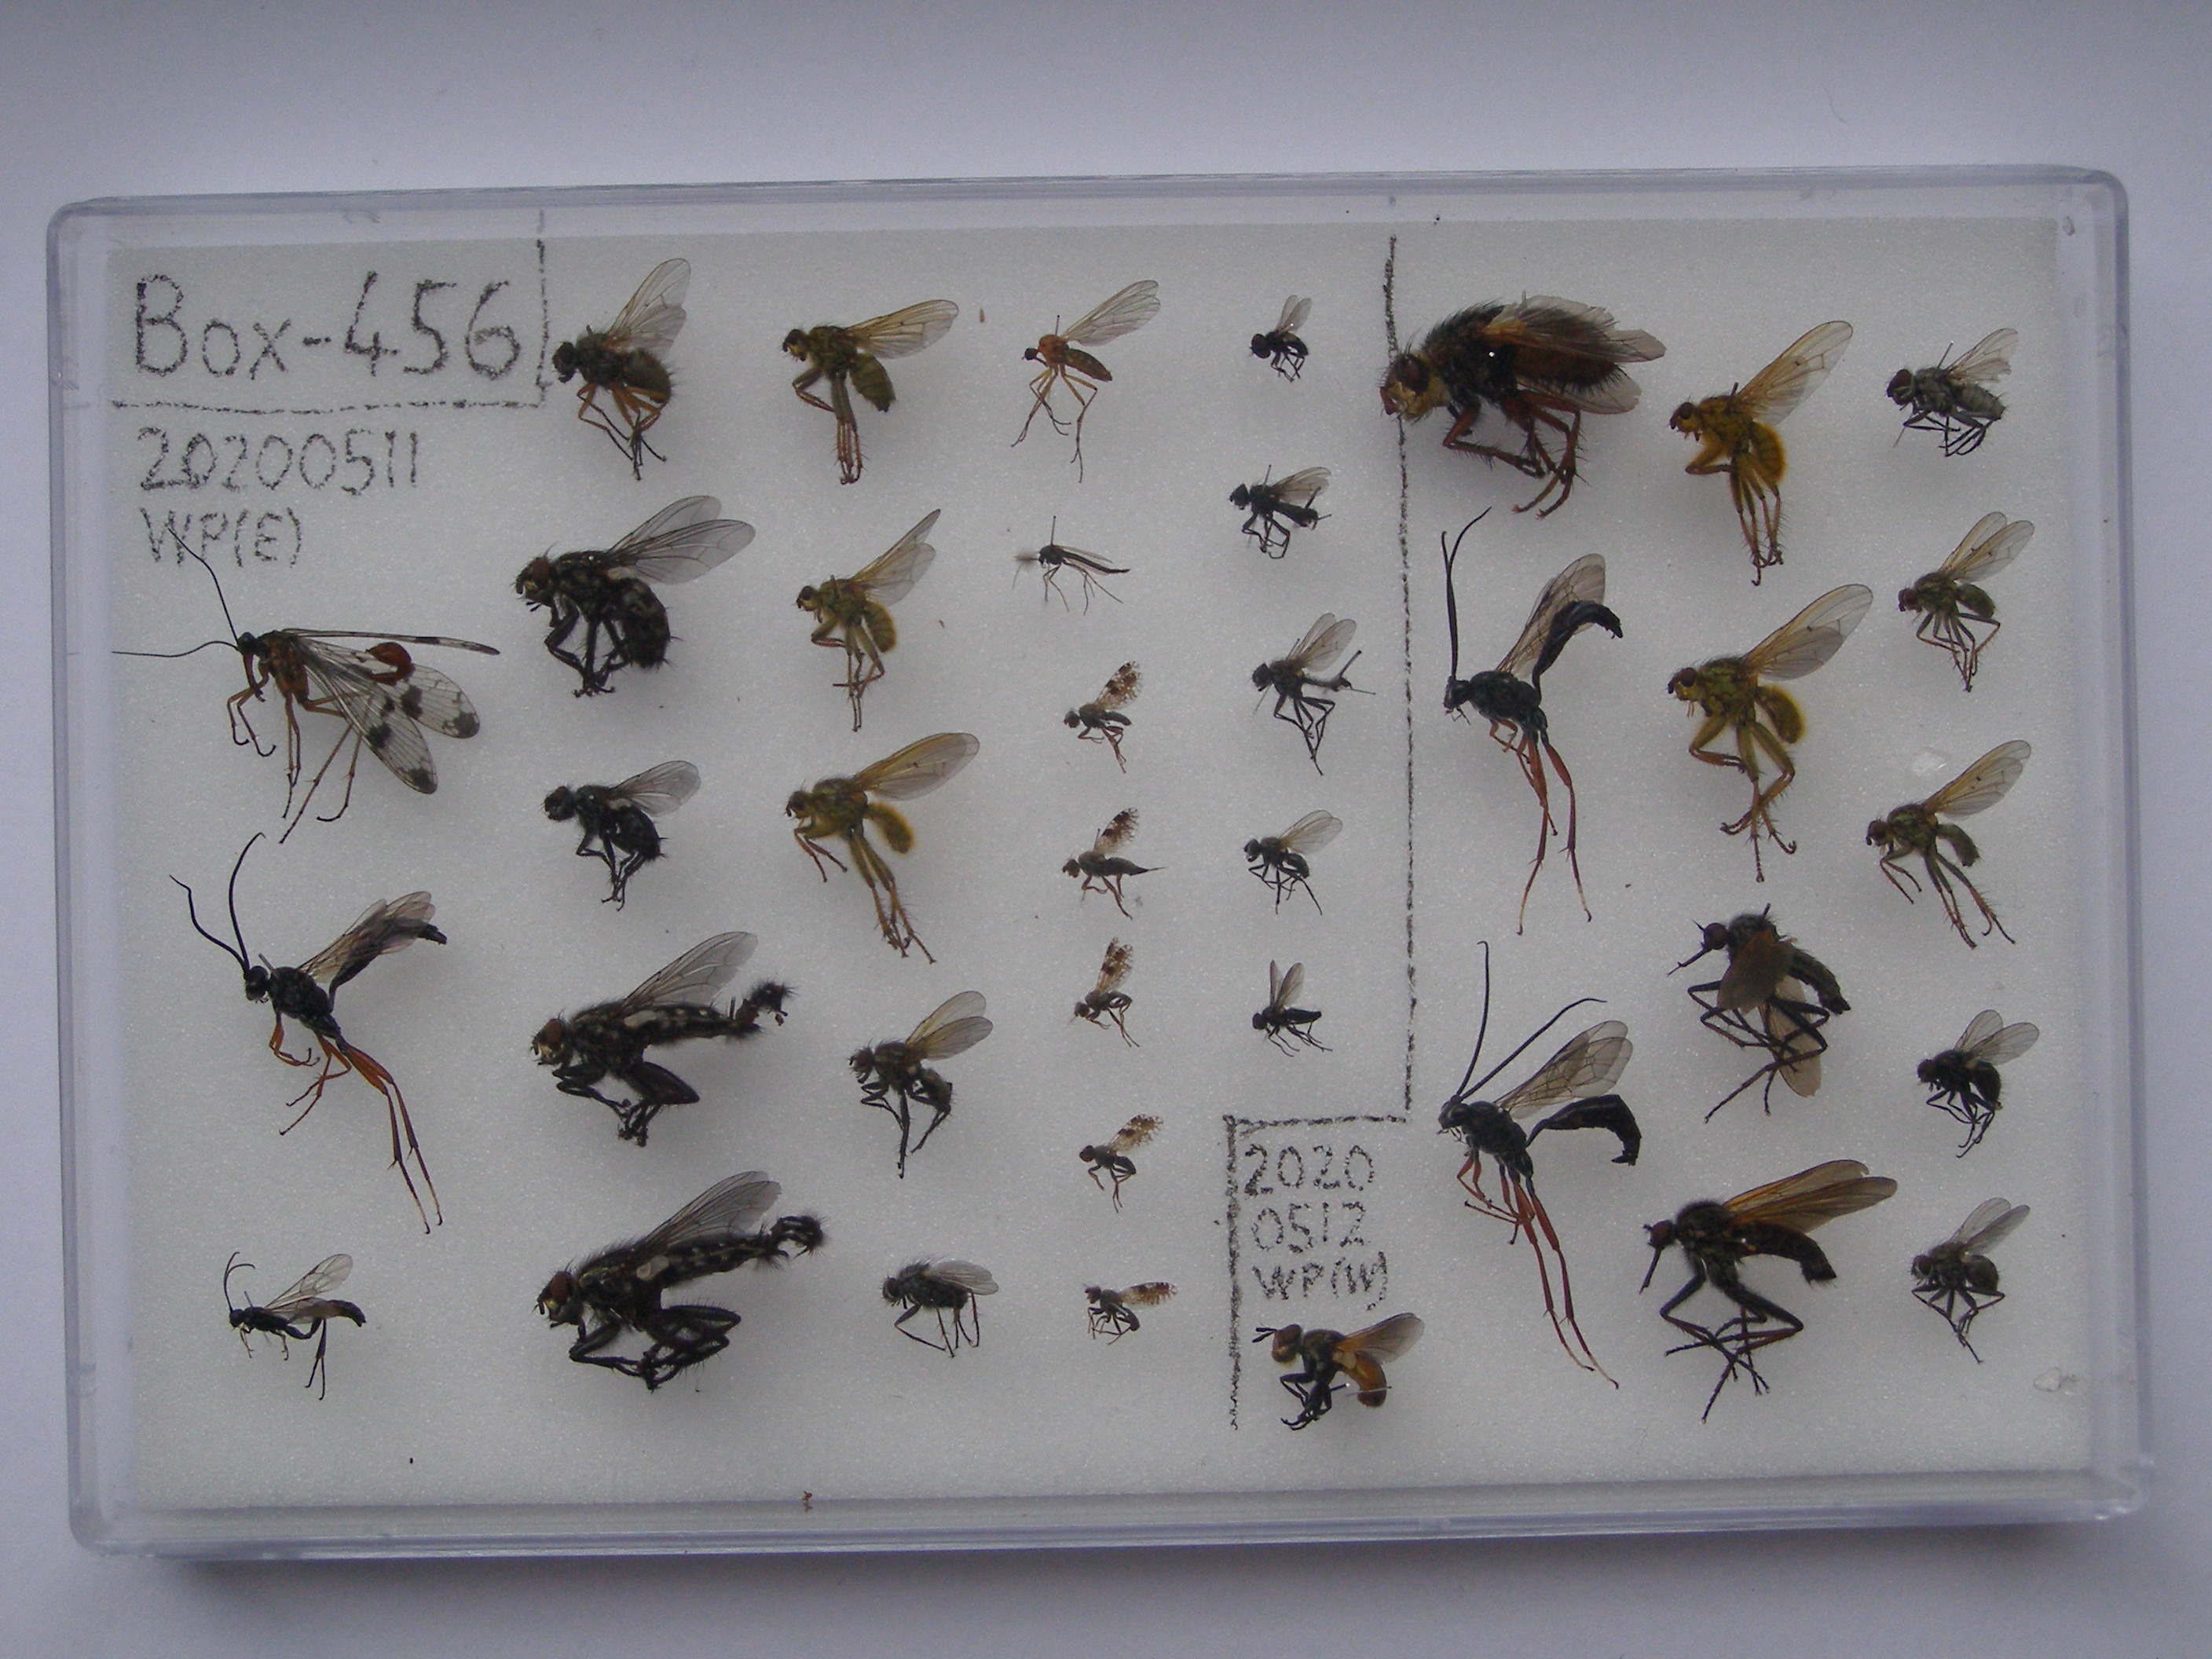 Box-456
20200511
WP(E)
2020
0512
WP(W)